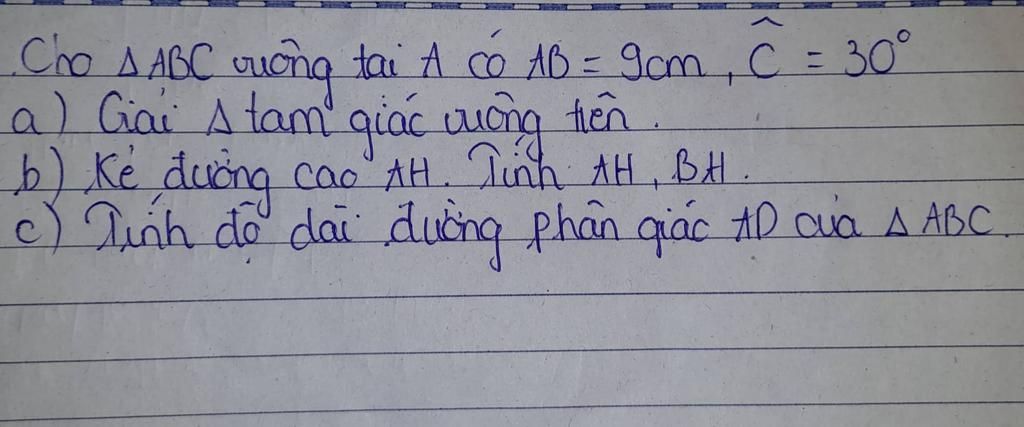 Cho Δ ABC vuông tại A có AB = 9cm, Ĉ = 30°
a) Giải Δ tam giác vuông tiên.
b) Kẻ đường cao AH. Tính AH, BH.
c) Tính độ dài đường phân giác AD của Δ ABC.